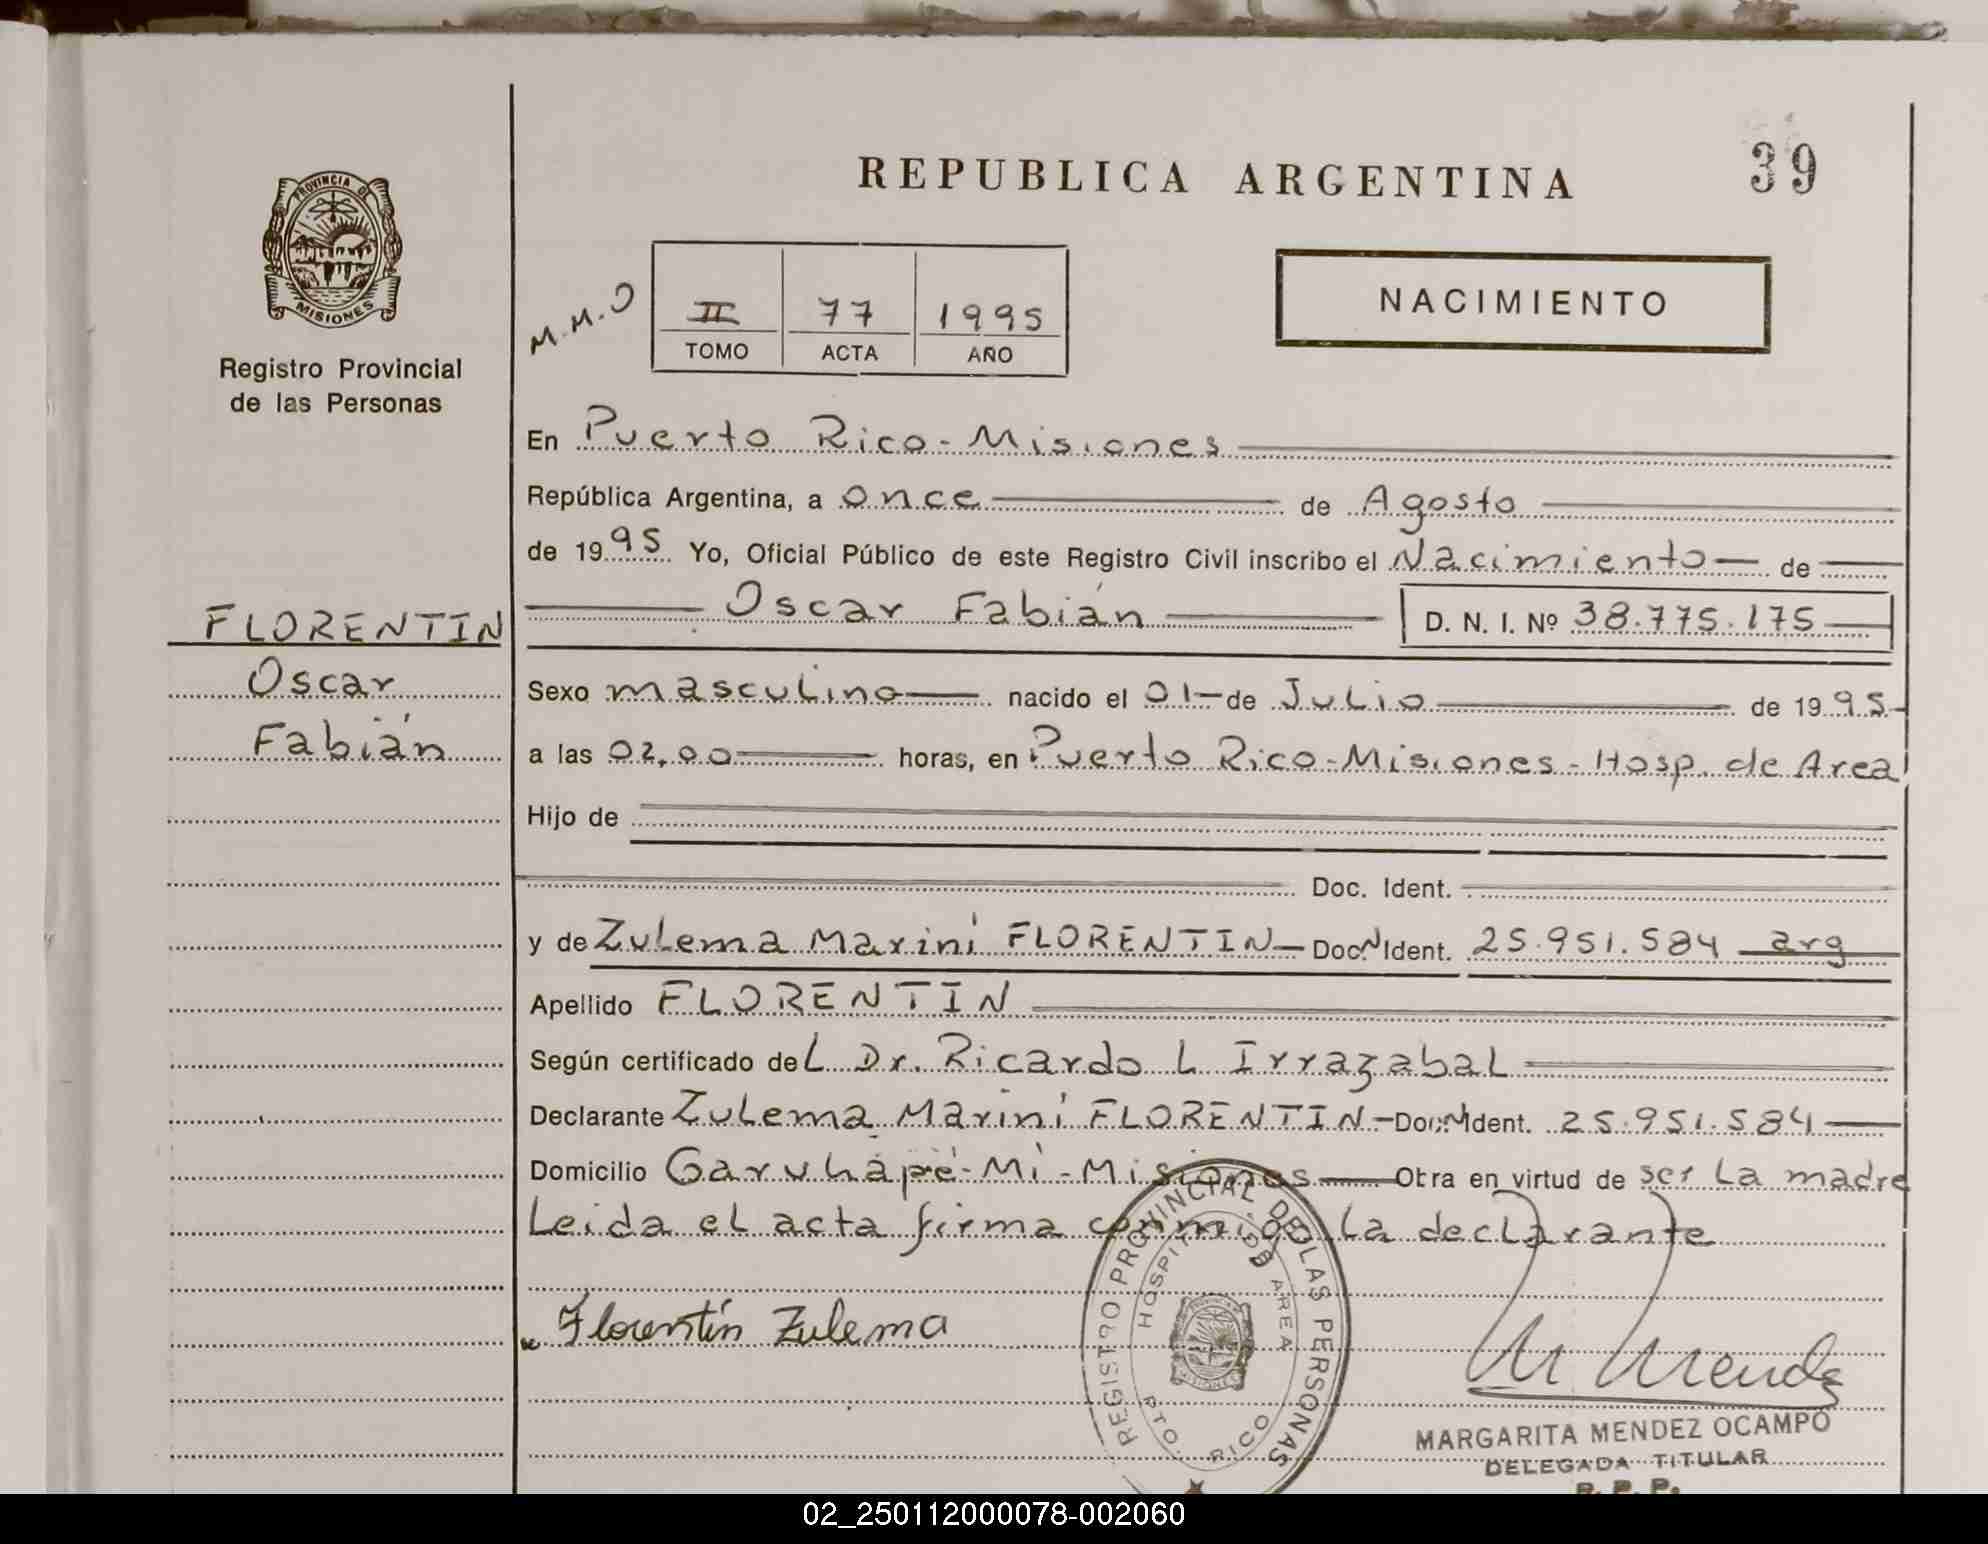 REPUBLICA ARGENTINA
39
PROVINCIA DE
MISIONES
Registro Provincial
de las Personas
M.M.O
II 77 1995
TOMO ACTA AÑO
NACIMIENTO
En Puerto Rico - Misiones
República Argentina, a once de Agosto
de 1995 Yo, Oficial Público de este Registro Civil inscribo el Nacimiento de
Oscar Fabián D. N. I. Nº 38.775.175
FLORENTIN
Oscar
Fabián
Sexo masculino nacido el 01 de Julio de 1995
a las 02,00 horas, en Puerto Rico-Misiones - Hosp. de Area
Hijo de
Doc. Ident.
y de Zulema Marini FLORENTIN Doc. N Ident. 25.951.584 arg
Apellido FLORENTIN
Según certificado del Dr. Ricardo L Irrazabal
Declarante Zulema Marini FLORENTIN Doc. N Ident. 25.951.584
Domicilio Garuhapé-Mi-Misiones Otra en virtud de ser la madre
Leida el acta firma conmigo la declarante
Florentín Zulema
REGISTRO PROVINCIAL DE LAS PERSONAS
HOSPITAL DE AREA
PTO. RICO
MISIONES
M Mendez
MARGARITA MENDEZ OCAMPO
DELEGADA TITULAR
R. P. P.
02_250112000078-002060